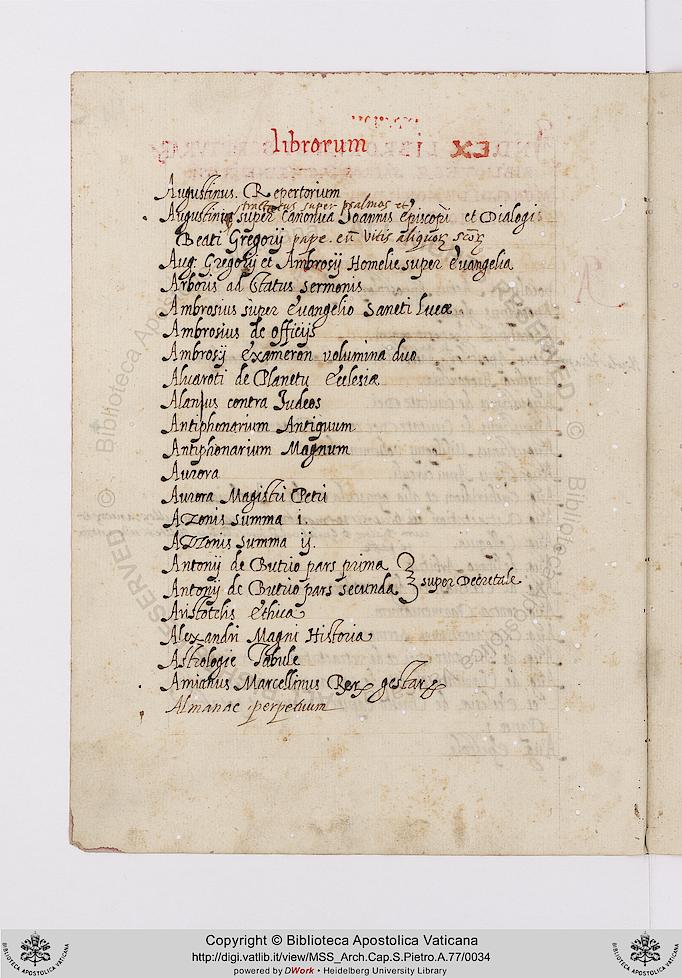 librorum
Augustinus. Repertorium
tractatus super psalmos et
Augustinus super Canonica Joannis episcopi et Dialogi
Beati Gregorij pape. eu vitis aliquoꝝ scoꝝ
Aug. Gregorij et Ambrosij Homelie super Evangelia
Arboris ad Status sermonis
Ambrosius super evangelio Sancti Lucæ
Ambrosius de officijs
Ambrosij exameron volumina duo
Alvaroti de Planctu Ecclesiæ
Alanus contra Judeos
Antiphonarium Antiquum
Antiphonarium Magnum
Aurora
Aurora Magistri Petri
Azonis Summa i.
Azzonis Summa ij.
Antonij de Butrio pars prima
Antonij de Butrio pars secunda
super Decretale
Aristotelis ethica
Alexandri Magni Historia
Astrologie Tabule
Amianus Marcellinus Reꝝ gestaꝝ
Almanac perpetuum
RESERVED © Biblioteca Apostolica
Copyright © Biblioteca Apostolica Vaticana
http://digi.vatlib.it/view/MSS_Arch.Cap.S.Pietro.A.77/0034
powered by DWork • Heidelberg University Library
BIBLIOTECA APOSTOLICA VATICANA
BIBLIOTECA APOSTOLICA VATICANA